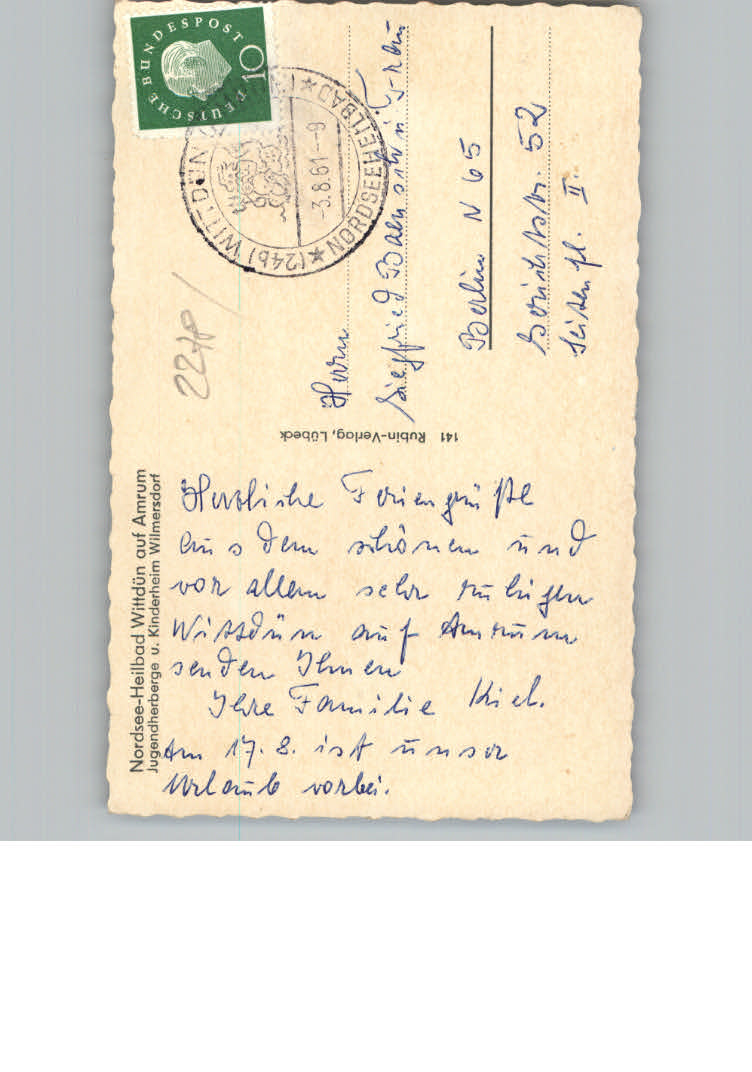 Nordsee-Heilbad Wittdün auf Amrum
Jugendherberge u. Kinderheim Wilmersdorf
Herzliche Feriengrüße
aus dem schönen und
vor allem sehr ruhigen
Wittdün auf Amrum
senden Ihnen
Ihre Familie Kiel.
Am 17.8. ist unser
Urlaub vorbei.
141 Rubin-Verlag, Lübeck
DEUTSCHE BUNDESPOST
10
(24b) WITTDÜN
NORDSEEHEILBAD
-3.8.61--9
2278
Herrn
Siegfried u. Frau
Berlin N 65
Gerichtstr. 52
Seitenfl. II.